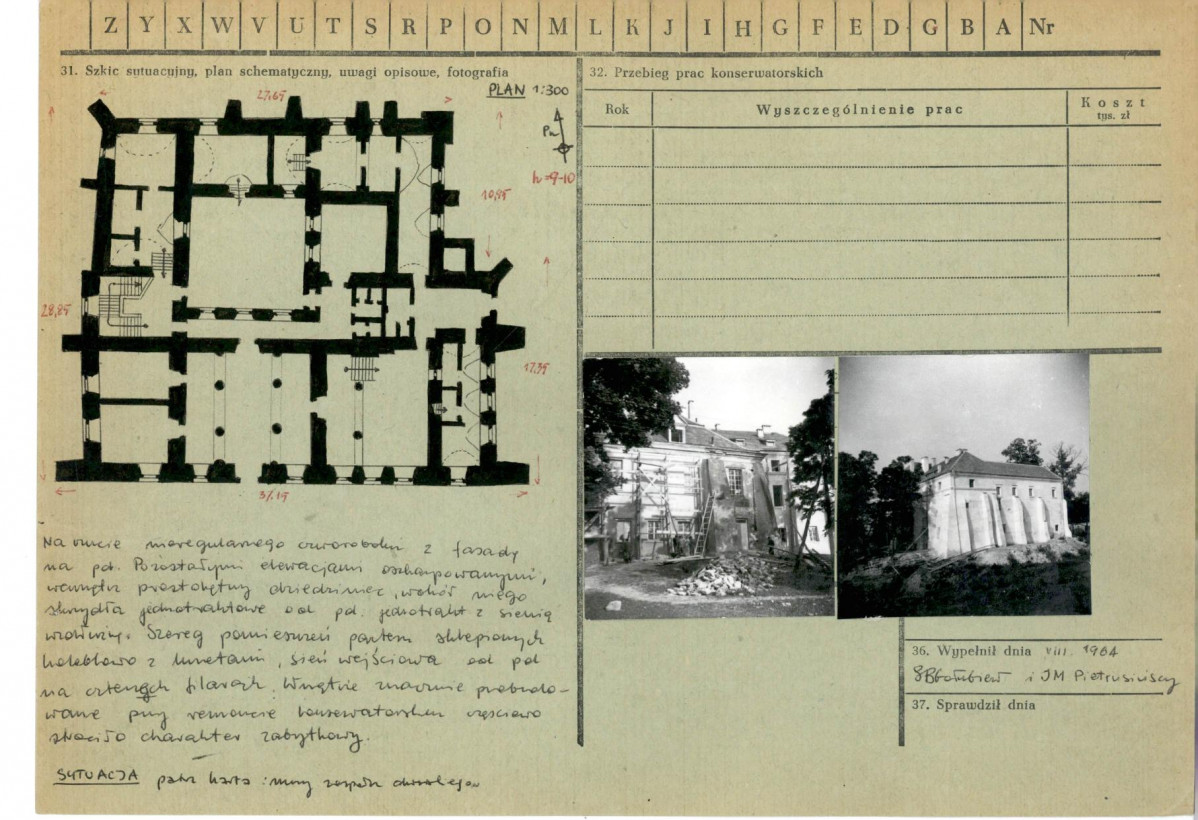 Z Y X W V U T S R P O N M L K J I H G F E D G B A Nr
31. Szkic sytuacyjny, plan schematyczny, uwagi opisowe, fotografia
PLAN 1:300
27,65
Pn
h=9-10
10,95
28,85
17,35
37,15
Na rzucie nieregularnego czworoboku z fasadą
na pd. Pozostałymi elewacjami oszkarpowanymi,
wewnątrz prostokątny dziedziniec, wokół niego
skrzydła jednotraktowe od pd. jednotrakt z sienią
Szereg pomieszczeń parteru sklepionych
kolebkowo z lunetami, sień wejściowa od pd
na czterech filarach. Wnętrze znacznie przebudo-
wane przy remoncie konserwatorskim częściowo
straciło charakter zabytkowy.
SYTUACJA patrz karta:
32. Przebieg prac konserwatorskich
Rok
Wyszczególnienie prac
Koszt
tys. zł
36. Wypełnił dnia VIII. 1964
i JM
37. Sprawdził dnia